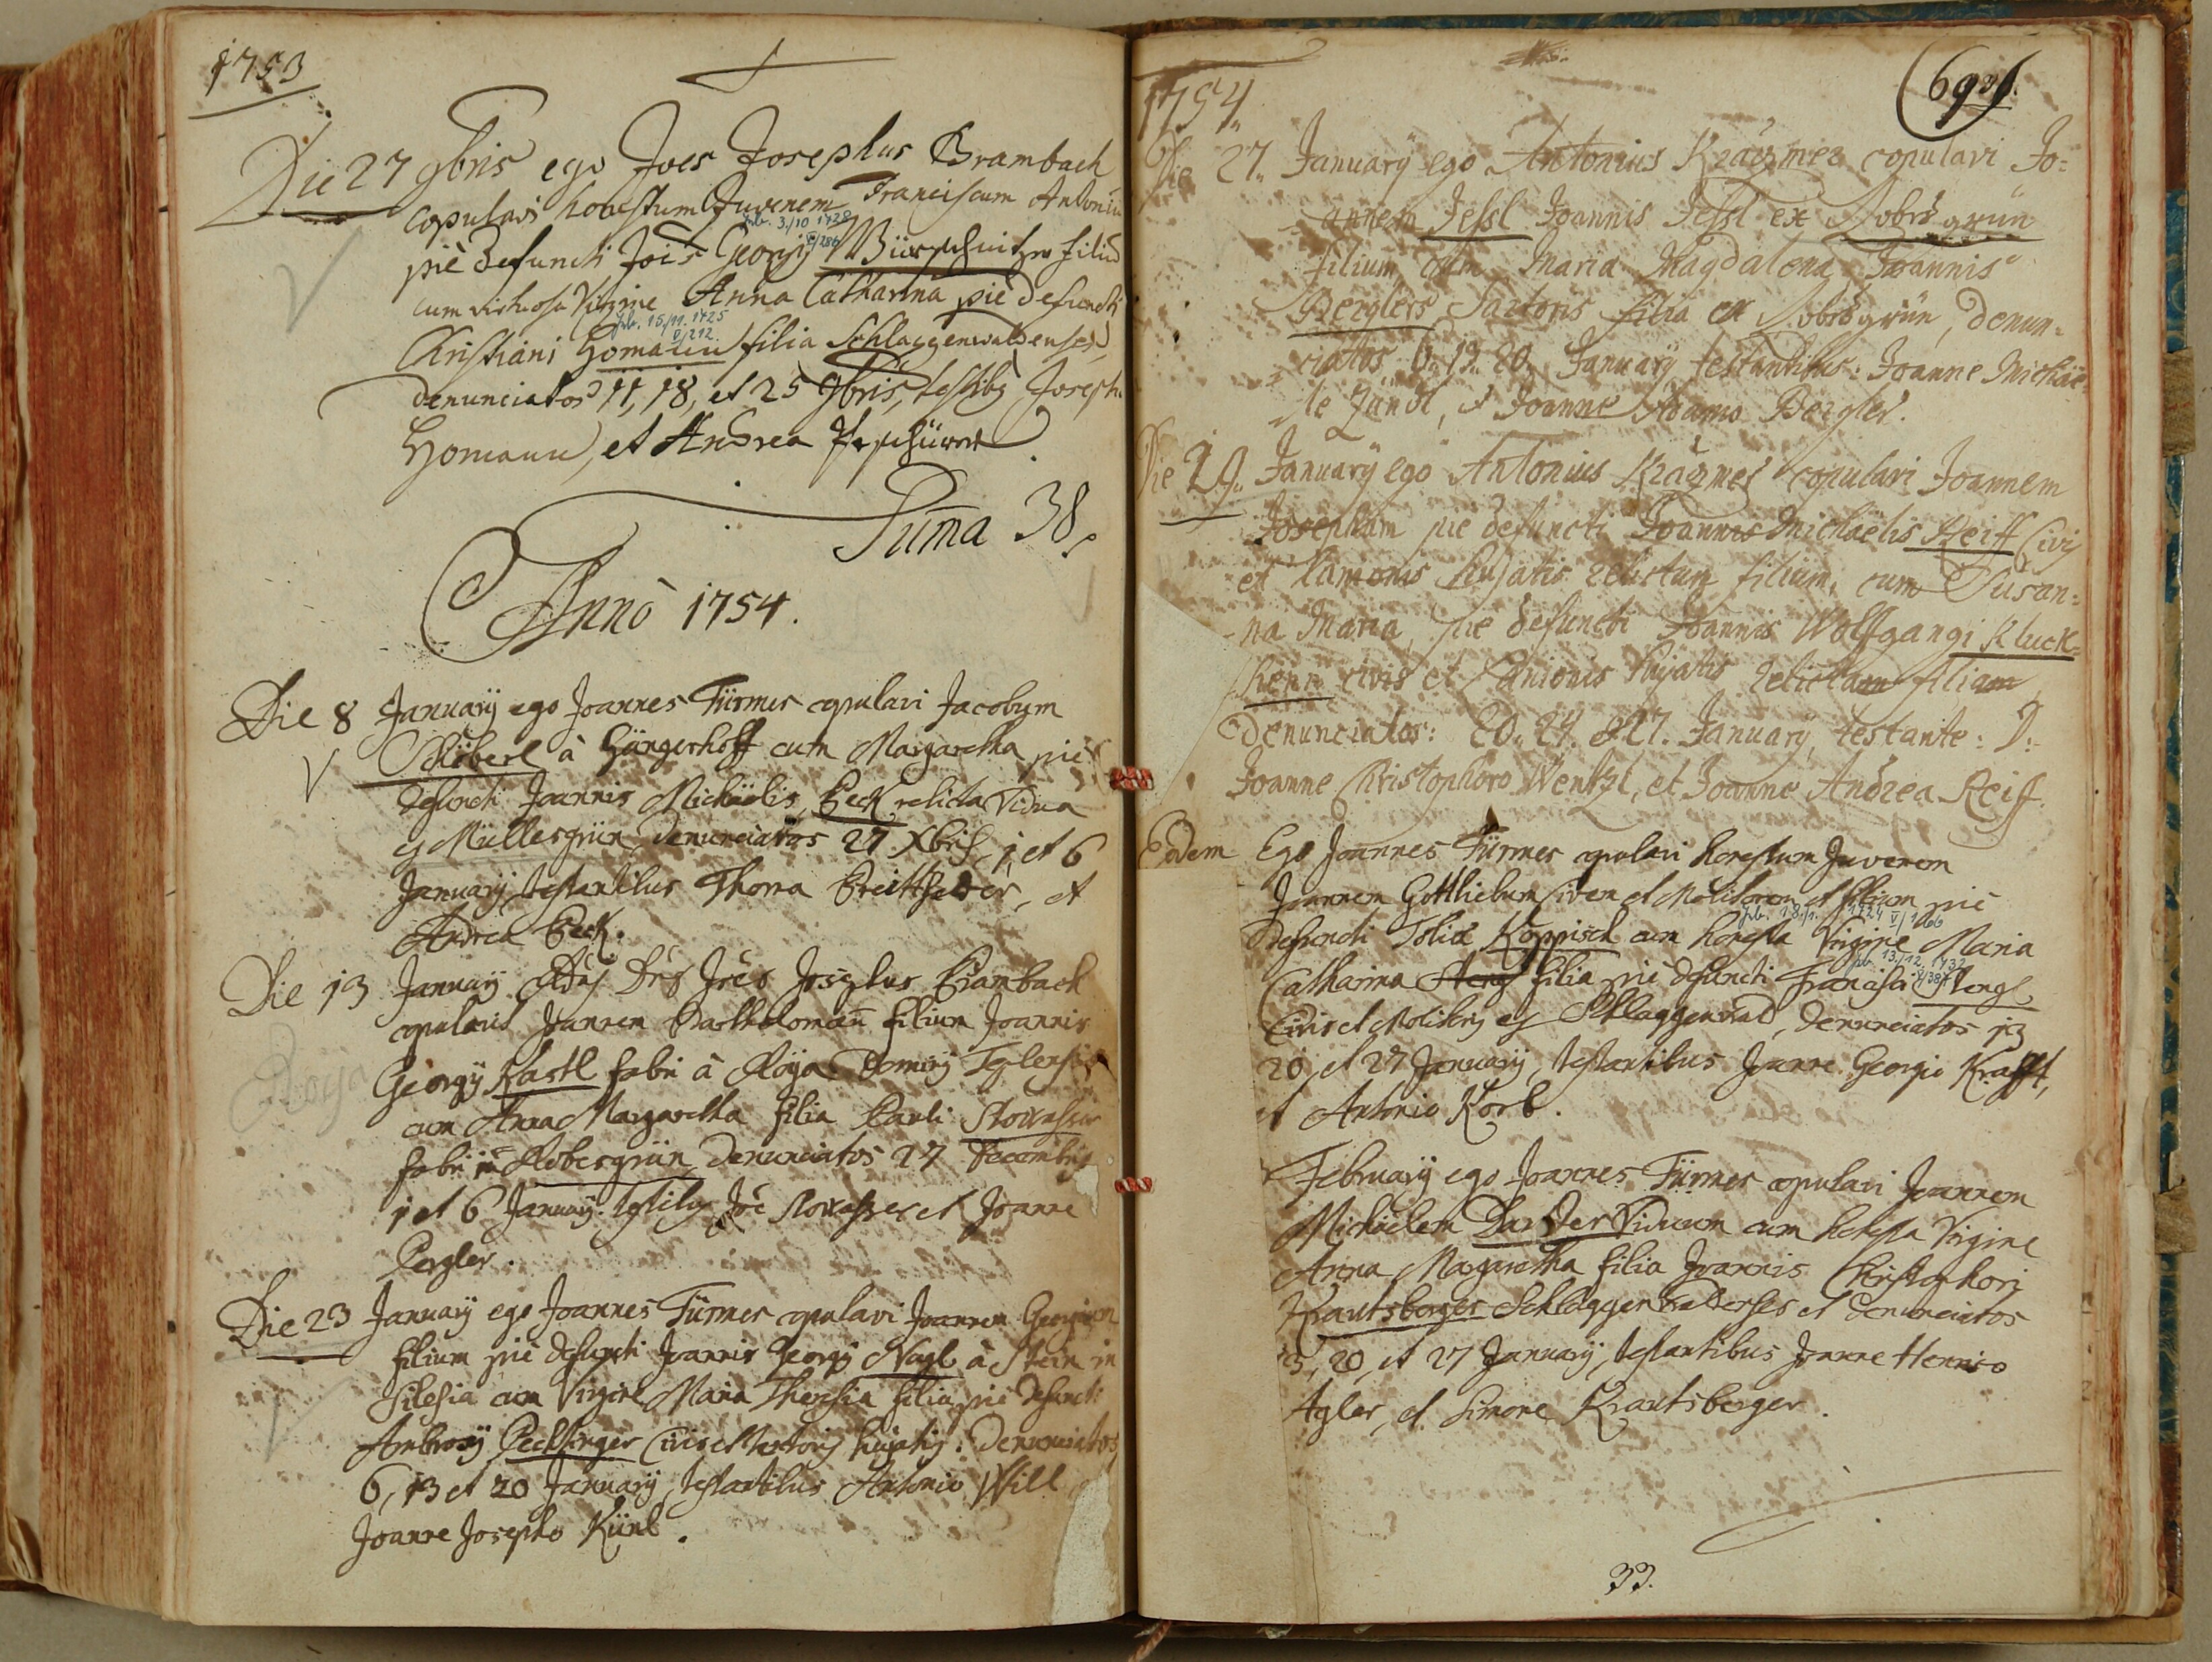 1753
Die 27 9bris ego Joes Josephus Brambach
copulavi honestum Juvenem Franciscum Antoniu
pie defuncti Jois Georgij Würschnitzer filiu
cum virtuosa Virgine Anna Catharina pie defuncti
Christiani Homann filia Schlaggenwaldenses
denunciatos 11, 18, et 25 9bris, testibg Joseph.
Homann, et Andrea
Suma 38.
Anno 1754.
Die 8 January ego Joannes Türmer copulavi Jacobum
Schöberl à Hängerhoff cum Margaretha pie
defuncti Joannis Michaelis Beck relicta Vidua
ex Müllersgrün, denunciatos 27 Xbris, 1, et 6
January, testantibus Thoma Breitfelder, et
Andrea Beck.
Die 13 January Josephus Brambach
copulavit Joannem Bartholomaeu filium Joannis
Georgÿ Kastl fabri à Roja
Roja
cum Anna Margaretha filia Pauli Stowasser
fabri in Robesgrün, denunciatos 27 Decembris
1 et 6 January. testibg Joe Stowasser et Joanne
Pergler.
Die 23 January ego Joannes Türmer copulavi Joannem Georgium
filium pie defuncti Joannis Georgÿ Nagl à Stein in
Silesia cum Virgine Maria Theresia filia pie defuncti
Ambrosÿ Pechfinger Civis et hujatis. Denunciatos
6, 13 et 20 January, testantibus Antonio Will
Joanne Josepho Künl.
1754
Die 27. Januarÿ ego Antonius Kräzmer copulavi Jo=
annem Jessl Joannis Jessl ex Robesgrün
filium cum Maria Magdalena Joannis
Berglers Sartoris filia ex Robesgrün, denun=
ciatos 6. 13. 20. Januarÿ, testantibus: Joanne Michae=
le Zändl, et Joanne Adamo Bergler.
Die 29. Januarÿ ego Antonius Kräzmer copulavi Joannem
Josephum pie defuncti Joannis Michaëlis Reiff Civis
et Lanionis hujatis relictum filium, cum Susan=
na Maria, pie defuncti Joannis Wolffgangi Kluck=
henn civis et Lanionis hujatis relictam filiam
denunciatos: 20. 24. et 27. January, testante: D:
Joanne Christophoro Wentzl, et Joanne Andrea Reiff.
Eodem Ego Joannes Türmer copulavi honestum Juvenem
Joannem Gottliebum Civem et Molitorem et filium pie
defuncti Tobiae Köppisch cum honesta Virgine Maria
Catharina Stengl filia pie defuncti Francisci Stengl
Civis et Molitoris ex Schlaggenwald, denunciatos 13
20, et 27 January, testantibus Joanne Georgio Krafft,
et Antonio Korb.
February ego Joannes Türmer copulavi Joannem
Michaelem Darder Viduum cum honesta Virgine
Anna Margaretha filia Joannis Christophori
Krautsberger Schlaggenwaldenses et denunciatos
13, 20, et 27 January, testantibus Joanne Henrico
Agler, et Simone Krautsberger.
33.